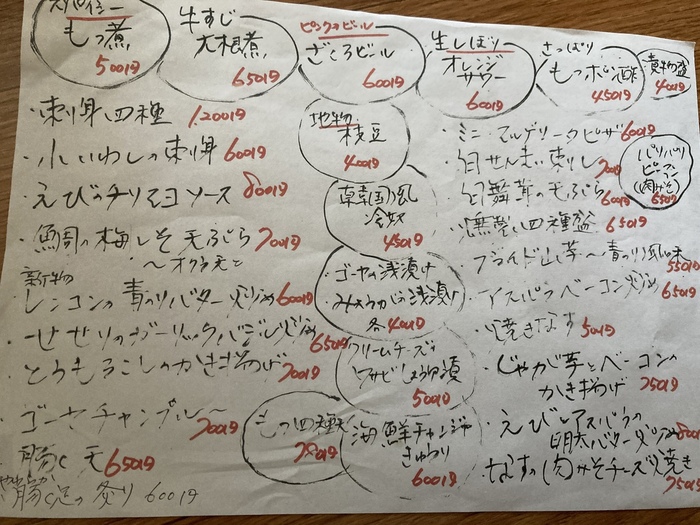 スパイシー
もつ煮
500円
牛すじ
大根煮
650円
ピンクのビール
ざくろビール
600円
生しぼり
オレンジ
サワー
600円
さっぱり
もつポン酢
450円
400円
・刺身四種 1,200円
・小いわしの刺身 600円
・えびのチリマヨソース 800円
・鯛の梅しそ天ぷら 700円
〜オクラ天と
新物
レンコンの青のりバター炒め 600円
・せせりのガーリックバジル炒め 650円
・とうもろこしのかき揚げ 700円
・ゴーヤチャンプルー 700円
天 650円
炙り 600円
地物
枝豆
400円
韓国風
冷奴
450円
ゴーヤの浅漬け
みょうがの浅漬け
各400円
クリームチーズの
ワサビしょうゆ漬
500円
もつ四種
海鮮チャンジャ
きゅうり
600円
・ミニマルゲリータピザ 600円
・白せんまい刺し 700円
・幻舞茸の天ぷら 600円
・燻製四種盛 650円
パリパリ
ピーマン
(肉みそ)
650円
・フライド山芋〜青のり風味 550円
・アスパラベーコン炒め 650円
・焼きなす 500円
・じゃが芋とベーコンの
かき揚げ 750円
・えびとアスパラの
明太バター炒め 800円
・なすの肉みそチーズ焼き
750円